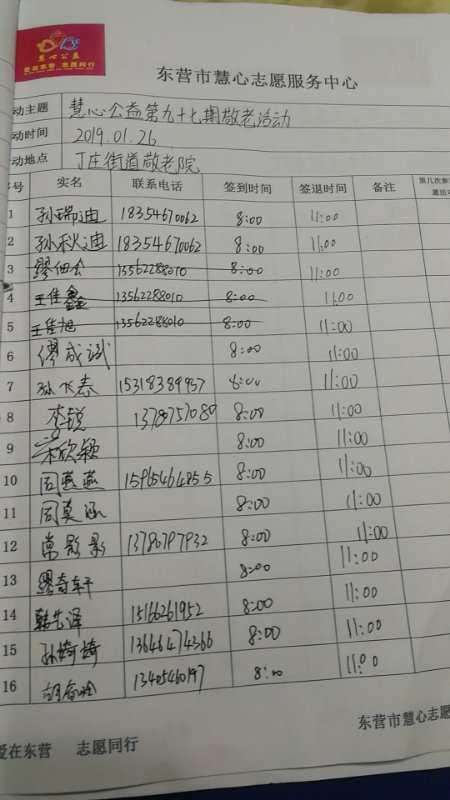 慧心公益
爱在东营 志愿同行
东营市慧心志愿服务中心
动主题 慧心公益第九十七期敬老活动
动时间 2019.01.26
动地点 丁庄街道敬老院
序号 实名 联系电话 签到时间 签退时间 备注 第几次参
1 孙瑞迪 18354670062 8:00 11:00
2 孙秋迪 18354670062 8:00 11:00
3 缪佃会 13562288010 8:00 11:00
4 王佳鑫 13562288010 8:00 11:00
5 王佳旭 13562288010 8:00 11:00
6 缪成斌 8:00 11:00
7 孙飞燕 15318389957 8:00 11:00
8 李锐 8:00 11:00
9 宋欣颖 8:00 11:00
10 周燕燕 8:00 11:00
11 周莫涵 8:00 11:00
12 常影影 8:00 11:00
13 缪奇轩 8:00 11:00
14 15166261952 8:00 11:00
15 孙婷婷 13646474366 8:00 11:00
16 13405460197 8:00 11:00
爱在东营 志愿同行 东营市慧心志愿